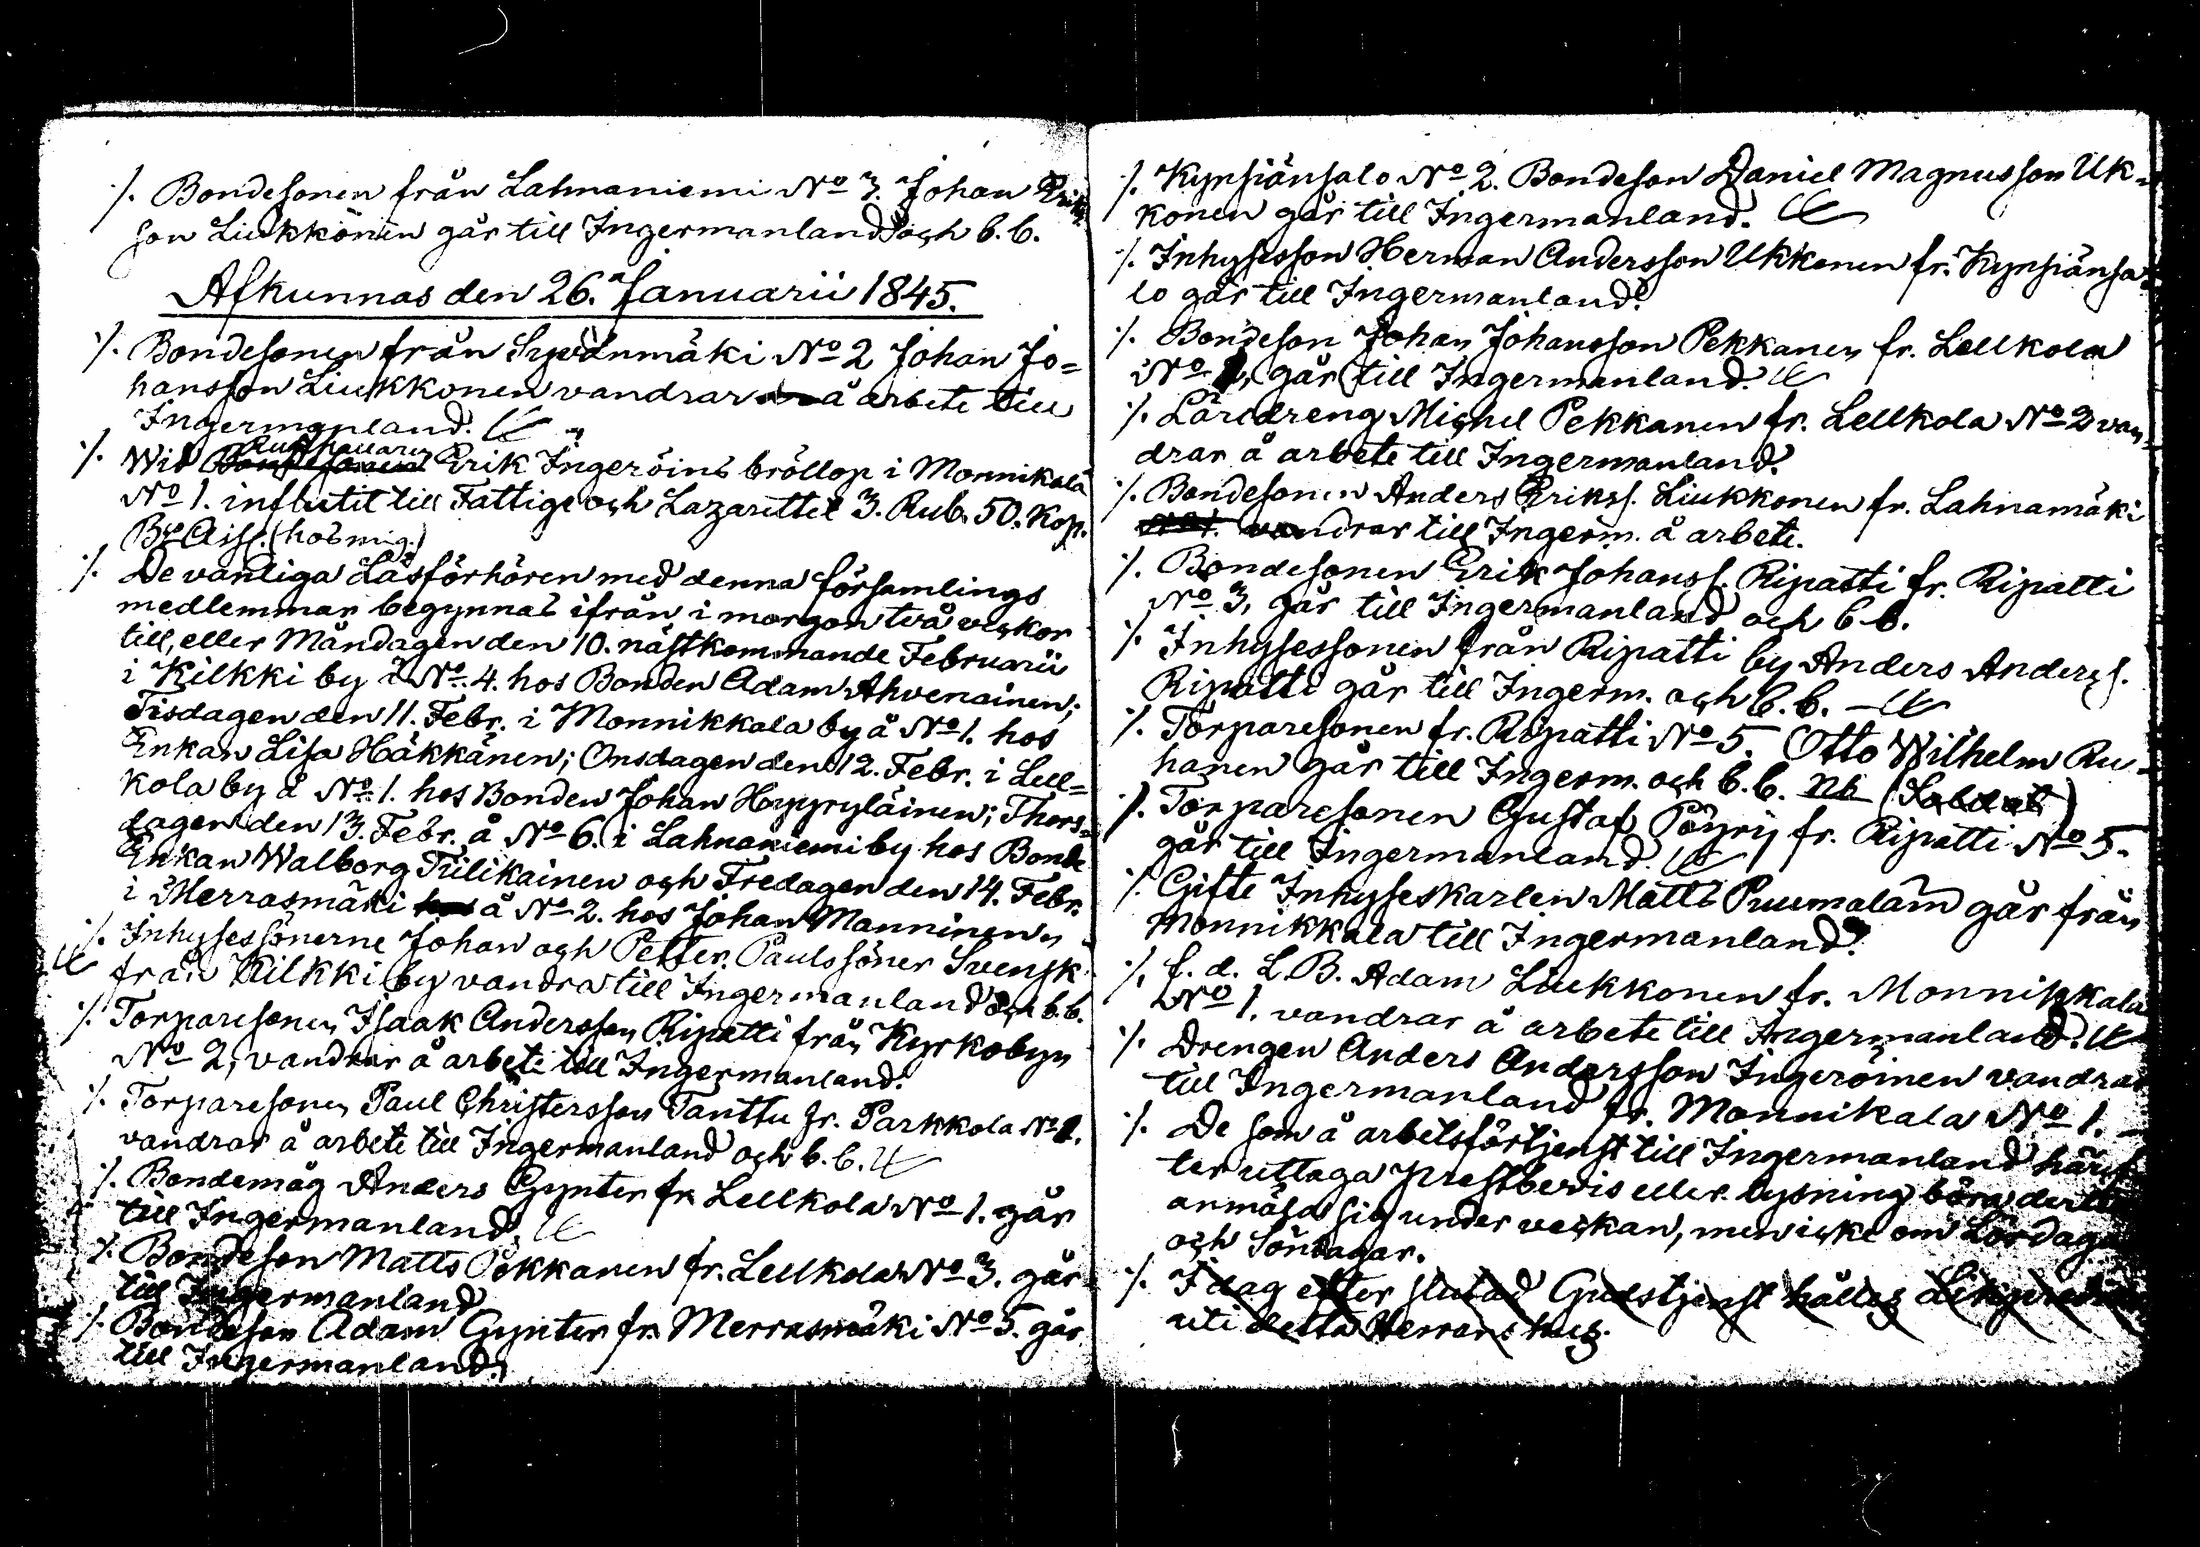 ·/. Bondesonen från Lahnaniemi No 3. Johan Eriks
son Liukkönen går till Ingermanland och b.b.
Afkunnas den 26. Januarii 1845.
·/. Bondesonen från Sydänmäki No 2 Johan Jo=
hansson Liukkonen vandrar å arbete till
Ingermanland.
·/. Wid Erik Ingeröins bröllop i Monnikala
No 1. influtit till Fattige och Lazarettet 3. Rub. 50. Kop.
Bco Ass. (hos mig.)
·/. De vanliga Läsförhören med denna församlings
medlemmar begynnas ifrån i morgon två veckor
till, eller Måndagen den 10. nästkommande Februarii
i Kilkki by å No 4. hos Bonden Adam Ahvenainen;
Tisdagen den 11. Febr. i Monnikkala by å No 1. hos
Enkan Lisa Häkkänen; Onsdagen den 12. Febr. i Lell=
kola by å No 1. hos Bonden Johan Hyyryläinen; Thors=
dagen den 13. Febr. å No 6. i Lahnaniemi by hos Bonde
Enkan Walborg Tiilikainen och Fredagen den 14. Febr.
i Merrasmäki å No 2. hos Johan Manninen
·/. Inhysessönerne Johan och Petter Paulssöner Svensk
från Kilkki by vandra till Ingermanland och b.b.
·/. Torparesonen Isaak Andersson Ripatti från Kyrkobyn
No 2, vandrar å arbete till Ingermanland.
·/. Torparesonen Paul Christersson Tanttu fr. Parkkola No 1.
vandrar å arbete till Ingermanland och b.b.
·/. Bondemåg Anders Gynter fr Lellkola No 1. går
till Ingermanland.
·/. Bondeson Matts Pekkanen fr. Lellkola No 3. går
till Ingermanland
·/. Bondeson Adam Gynter fr. Merrasmäki No 5. går
till Ingermanland.
·/. Kynsiänsalo No 2. Bondeson Daniel Magnusson Uk=
konen går till Ingermanland.
·/. Inhysesson Herman Andersson Ukkonen fr. Kynsiänsa
lo går till Ingermanland.
·/. Bondeson Johan Johansson Pekkanen fr. Lellkola
No går till Ingermanland.
·/. Läredreng Michel Pekkanen fr. Lellkola No 2 van=
drar å arbete till Ingermanland.
·/. Bondesonen Anders Erikss. Liukkonen fr. Lahnamäki
vandrar till Ingerm. å arbete.
·/. Bondesonen Erik Johanss. Ripatti fr. Ripatti
No 3, går till Ingermanland och b.b.
·/. Inhysessonen från Ripatti by Anders Anderss.
Ripatti går till Ingerm. och b.b. —
·/. Torparesonen fr. Ripatti No 5. Otto Wilhelm Ru=
hanen går till Ingerm. och b.b. nb (Soldat)
·/. Torparesonen Gustaf Pöyry fr. Ripatti No 5.
går till Ingermanland.
·/. Gifte Inhyseskarlen Matts Puumalain går från
Monnikkala till Ingermanland.
·/. f. d. L.B. Adam Liukkonen fr. Monnikkala
No 1. vandrar å arbete till Ingermanland.
·/. Drengen Anders Andersson Ingeröinen vandrar
till Ingermanland fr. Monnikala No 1. —
·/. De som å arbetsförtjenst till Ingermanland häref
ter uttaga prestbevis eller lysning böra
anmäla sig under veckan, men icke om Lördagar
och Söndagar.
·/. I dag efter slutad Gudstjenst hålles
uti detta Herrans hus.